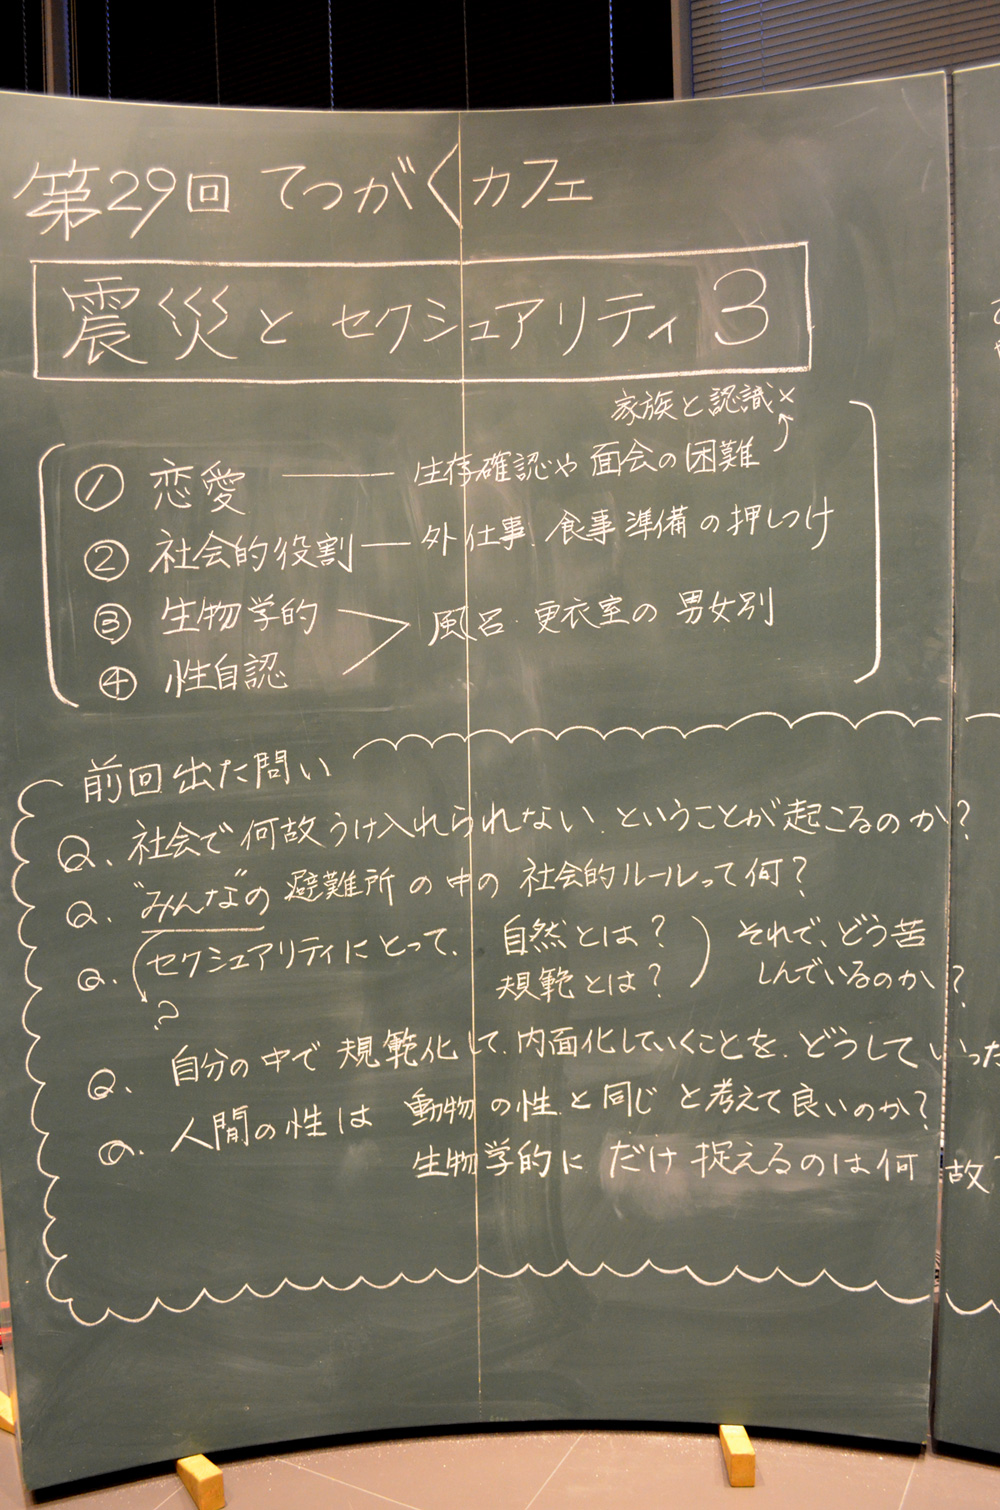 第29回 てつがくカフェ
震災とセクシュアリティ3
家族と認識×
① 恋愛 ―― 生存確認や面会の困難
② 社会的役割 ― 外仕事.食事準備の押しつけ
③ 生物学的
風呂.更衣室の男女別
④ 性自認
前回出た問い
Q. 社会で何故うけ入れられない.ということが起こるのか?
Q. "みんな"の避難所の中の社会的ルールって何?
Q. (セクシュアリティにとって、 自然とは? それで、どう苦
規範とは? しんでいるのか?
?
Q. 自分の中で規範化して.内面化していくことを.どうしていった
Q. 人間の性は動物の性と同じと考えて良いのか?
生物学的にだけ捉えるのは何故